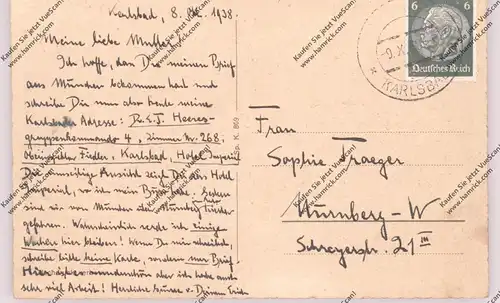 Karlsbad, 8. Okt. 1938.
Meine liebe Mutter!
Ich hoffe, dass Du meinen Brief
aus München bekommen hast und
schreibe Dir nun aber heute meine
Karlsbader Adresse: R.L.J. Heeres-
gruppenkommando 4, Zimmer Nr. 268.
Fiedler, Karlsbad, Hotel Imperial
Die Ansicht zeigt Dir das Hotel
Imperial, wo ich mein Büro habe. Gestern
sind wir von München über Nürnberg hierher
gefahren. Wahrscheinlich werde ich einige
Wochen hier bleiben! Wenn Du mir schreibst,
schreibe bitte keine Karte, sondern nur Brief.
Hier ist es wunderschön aber ich habe auch
sehr viel Arbeit! Herzliche Grüsse v. Deinem Erich
Frau
Sophie Traeger
Nürnberg-W
Schreyerstr. 21 III
6 6
Deutsches Reich
KARLSBAD
Sp. K. 869
Kaufen Sie jetzt VueScan!
www.hamrick.com